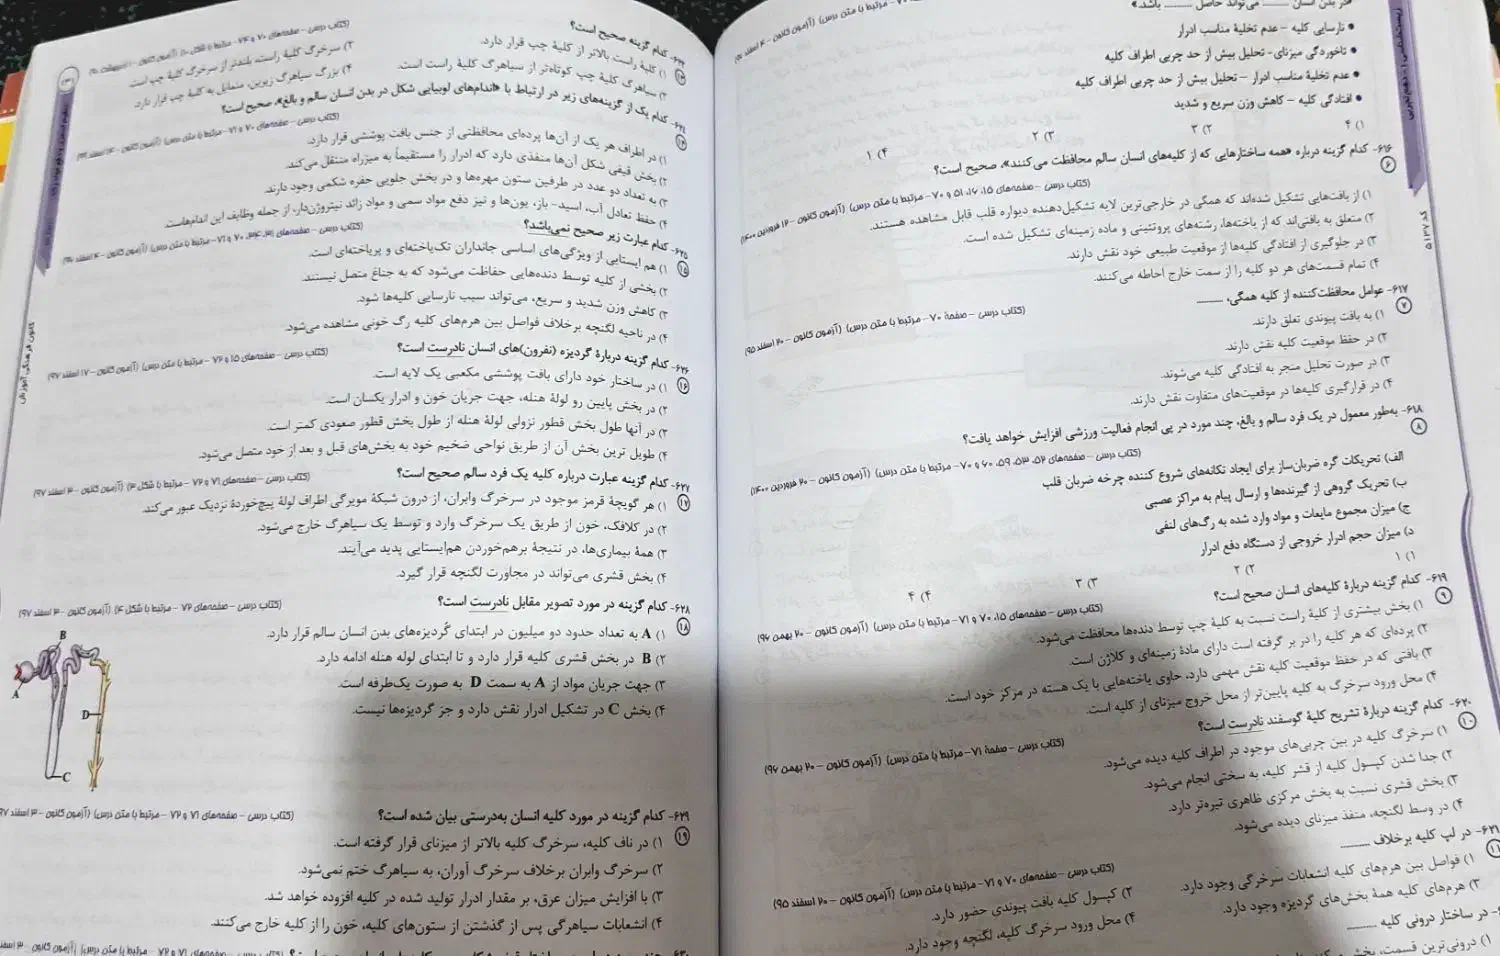 در بدن انسان ـــــــ می‌تواند حاصل ـــــــ باشد.»
• نارسایی کلیه – عدم تخلیهٔ مناسب ادرار
• تاخوردگی میزنای- تحلیل بیش از حد چربی اطراف کلیه
• عدم تخلیهٔ مناسب ادرار – تحلیل بیش از حد چربی اطراف کلیه
• افتادگی کلیه – کاهش وزن سریع و شدید
۱) ۴ ۲) ۳ ۳) ۲ ۴) ۱
۶۱۶- کدام گزینه درباره «همه ساختارهایی که از کلیه‌های انسان سالم محافظت می‌کنند»، صحیح است؟
۶
(کتاب درسی – صفحه‌های ۱۵، ۱۶، ۵۱ و ۷۰ – مرتبط با متن درس) (آزمون کانون – ۱۲ فروردین ۱۴۰۰)
۱) از بافت‌هایی تشکیل شده‌اند که همگی در خارجی‌ترین لایه تشکیل‌دهنده دیواره قلب قابل مشاهده هستند.
۲) متعلق به بافتی‌اند که از یاخته‌ها، رشته‌های پروتئینی و ماده زمینه‌ای تشکیل شده است.
۳) در جلوگیری از افتادگی کلیه‌ها از موقعیت طبیعی خود نقش دارند.
۴) تمام قسمت‌های هر دو کلیه را از سمت خارج احاطه می‌کنند.
۶۱۷- عوامل محافظت‌کننده از کلیه همگی، ـــــــ
۷
(کتاب درسی – صفحهٔ ۷۰ – مرتبط با متن درس) (آزمون کانون – ۲۰ اسفند ۹۵)
۱) به بافت پیوندی تعلق دارند.
۲) در حفظ موقعیت کلیه نقش دارند.
۳) در صورت تحلیل منجر به افتادگی کلیه می‌شوند.
۴) در قرارگیری کلیه‌ها در موقعیت‌های متفاوت نقش دارند.
۶۱۸- به‌طور معمول در یک فرد سالم و بالغ، چند مورد در پی انجام فعالیت ورزشی افزایش خواهد یافت؟
۸
(کتاب درسی – صفحه‌های ۵۲، ۵۳، ۵۹، ۶۰ و ۷۰ – مرتبط با متن درس) (آزمون کانون – ۲۰ فروردین ۱۴۰۰)
الف) تحریکات گره ضربان‌ساز برای ایجاد تکانه‌های شروع کننده چرخه ضربان قلب
ب) تحریک گروهی از گیرنده‌ها و ارسال پیام به مراکز عصبی
ج) میزان مجموع مایعات و مواد وارد شده به رگ‌های لنفی
د) میزان حجم ادرار خروجی از دستگاه دفع ادرار
۱) ۱ ۲) ۲ ۳) ۳ ۴) ۴
۶۱۹- کدام گزینه دربارهٔ کلیه‌های انسان صحیح است؟
۹
(کتاب درسی – صفحه‌های ۱۵، ۷۰ و ۷۱ – مرتبط با متن درس) (آزمون کانون – ۲۰ بهمن ۹۶)
۱) بخش بیشتری از کلیهٔ راست نسبت به کلیهٔ چپ توسط دنده‌ها محافظت می‌شود.
۲) پرده‌ای که هر کلیه را در بر گرفته است دارای مادهٔ زمینه‌ای و کلاژن است.
۳) بافتی که در حفظ موقعیت کلیه نقش مهمی دارد، حاوی یاخته‌هایی با یک هسته در مرکز خود است.
۴) محل ورود سرخرگ به کلیه پایین‌تر از محل خروج میزنای از کلیه است.
۶۲۰- کدام گزینه دربارهٔ تشریح کلیهٔ گوسفند نادرست است؟
۱۰
(کتاب درسی – صفحهٔ ۷۱ – مرتبط با متن درس) (آزمون کانون – ۲۰ بهمن ۹۶)
۱) سرخرگ کلیه در بین چربی‌های موجود در اطراف کلیه دیده می‌شود.
۲) جدا شدن کپسول کلیه از قشر کلیه، به سختی انجام می‌شود.
۳) بخش قشری نسبت به بخش مرکزی ظاهری تیره‌تر دارد.
۴) در وسط لگنچه، منفذ میزنای دیده می‌شود.
۶۲۱- در لپ کلیه برخلاف ـــــــ
۱۱
(کتاب درسی – صفحه‌های ۷۰ و ۷۱ – مرتبط با متن درس) (آزمون کانون – ۲۰ اسفند ۹۵)
۱) فواصل بین هرم‌های کلیه انشعابات سرخرگی وجود دارد. ۲) کپسول کلیه بافت پیوندی حضور دارد.
۳) هرم‌های کلیه همهٔ بخش‌های گردیزه وجود دارد. ۴) محل ورود سرخرگ کلیه، لگنچه وجود دارد.
- در ساختار درونی کلیه ـــــــ
۱) درونی‌ترین قسمت، بخش
۶۲۳- کدام گزینه صحیح است؟
۱۳
(کتاب درسی – صفحه‌های ۷۰ و ۷۴ – مرتبط با شکل
۱) کلیهٔ راست بالاتر از کلیهٔ چپ قرار دارد. ۲) سرخرگ کلیهٔ راست، بلندتر از سرخرگ کلیهٔ چپ است.
۳) سیاهرگ کلیهٔ چپ کوتاه‌تر از سیاهرگ کلیهٔ راست است. ۴) بزرگ سیاهرگ زیرین، متمایل به کلیهٔ چپ قرار دارد.
۶۲۴- کدام یک از گزینه‌های زیر در ارتباط با «اندام‌های لوبیایی شکل در بدن انسان سالم و بالغ»، صحیح است؟
۱۴
(کتاب درسی – صفحه‌های ۷۰ و ۷۱ – مرتبط با متن درس)
۱) در اطراف هر یک از آن‌ها پرده‌ای محافظتی از جنس بافت پوششی قرار دارد.
۲) بخش قیفی شکل آن‌ها منفذی دارد که ادرار را مستقیماً به میزراه منتقل می‌کند.
۳) به تعداد دو عدد در طرفین ستون مهره‌ها و در بخش جلویی حفره شکمی وجود دارند.
۴) حفظ تعادل آب، اسید- باز، یون‌ها و نیز دفع مواد سمی و مواد زائد نیتروژن‌دار، از جمله وظایف این اندام‌هاست.
۶۲۵- کدام عبارت زیر صحیح نمی‌باشد؟
۱۵
۱) هم ایستایی از ویژگی‌های اساسی جانداران تک‌یاخته‌ای و پریاخته‌ای است.
۲) بخشی از کلیه توسط دنده‌هایی حفاظت می‌شود که به جناغ متصل نیستند.
۳) کاهش وزن شدید و سریع، می‌تواند سبب نارسایی کلیه‌ها شود.
۴) در ناحیه لگنچه برخلاف فواصل بین هرم‌های کلیه رگ خونی مشاهده می‌شود.
۶۲۶- کدام گزینه دربارهٔ گردیزه (نفرون)های انسان نادرست است؟
۱۶
(کتاب درسی – صفحه‌های ۱۵ و ۷۲ – مرتبط با متن درس) (آزمون کانون – ۱۷ اسفند ۹۷)
۱) در ساختار خود دارای بافت پوششی مکعبی یک لایه است.
۲) در بخش پایین رو لولهٔ هنله، جهت جریان خون و ادرار یکسان است.
۳) در آنها طول بخش قطور نزولی لولهٔ هنله از طول بخش قطور صعودی کمتر است.
۴) طویل ترین بخش آن از طریق نواحی ضخیم خود به بخش‌های قبل و بعد از خود متصل می‌شود.
۶۲۷- کدام گزینه عبارت درباره کلیه یک فرد سالم صحیح است؟
۱۷
(کتاب درسی – صفحه‌های ۷۱ و ۷۲ – مرتبط با شکل ۳) (آزمون کانون – ۳ اسفند ۹۷)
۱) هر گویچهٔ قرمز موجود در سرخرگ وابران، از درون شبکهٔ مویرگی اطراف لولهٔ پیچ‌خوردهٔ نزدیک عبور می‌کند.
۲) در کلافک، خون از طریق یک سرخرگ وارد و توسط یک سیاهرگ خارج می‌شود.
۳) همهٔ بیماری‌ها، در نتیجهٔ برهم‌خوردن هم‌ایستایی پدید می‌آیند.
۴) بخش قشری می‌تواند در مجاورت لگنچه قرار گیرد.
۶۲۸- کدام گزینه در مورد تصویر مقابل نادرست است؟
۱۸
(کتاب درسی – صفحه‌های ۷۲ – مرتبط با شکل ۴) (آزمون کانون – ۳ اسفند ۹۷)
۱) A به تعداد حدود دو میلیون در ابتدای گردیزه‌های بدن انسان سالم قرار دارد.
۲) B در بخش قشری کلیه قرار دارد و تا ابتدای لوله هنله ادامه دارد.
۳) جهت جریان مواد از A به سمت D به صورت یک‌طرفه است.
۴) بخش C در تشکیل ادرار نقش دارد و جز گردیزه‌ها نیست.
B
A
D
C
۶۲۹- کدام گزینه در مورد کلیه انسان به‌درستی بیان شده است؟
۱۹
(کتاب درسی – صفحه‌های ۷۱ و ۷۲ – مرتبط با متن درس) (آزمون کانون – ۳ اسفند ۹۷
۱) در ناف کلیه، سرخرگ کلیه بالاتر از میزنای قرار گرفته است.
۲) سرخرگ وابران برخلاف سرخرگ آوران، به سیاهرگ ختم نمی‌شود.
۳) با افزایش میزان عرق، بر مقدار ادرار تولید شده در کلیه افزوده خواهد شد.
۴) انشعابات سیاهرگی پس از گذشتن از ستون‌های کلیه، خون را از کلیه خارج می‌کنند.
کانون فرهنگی آموزش